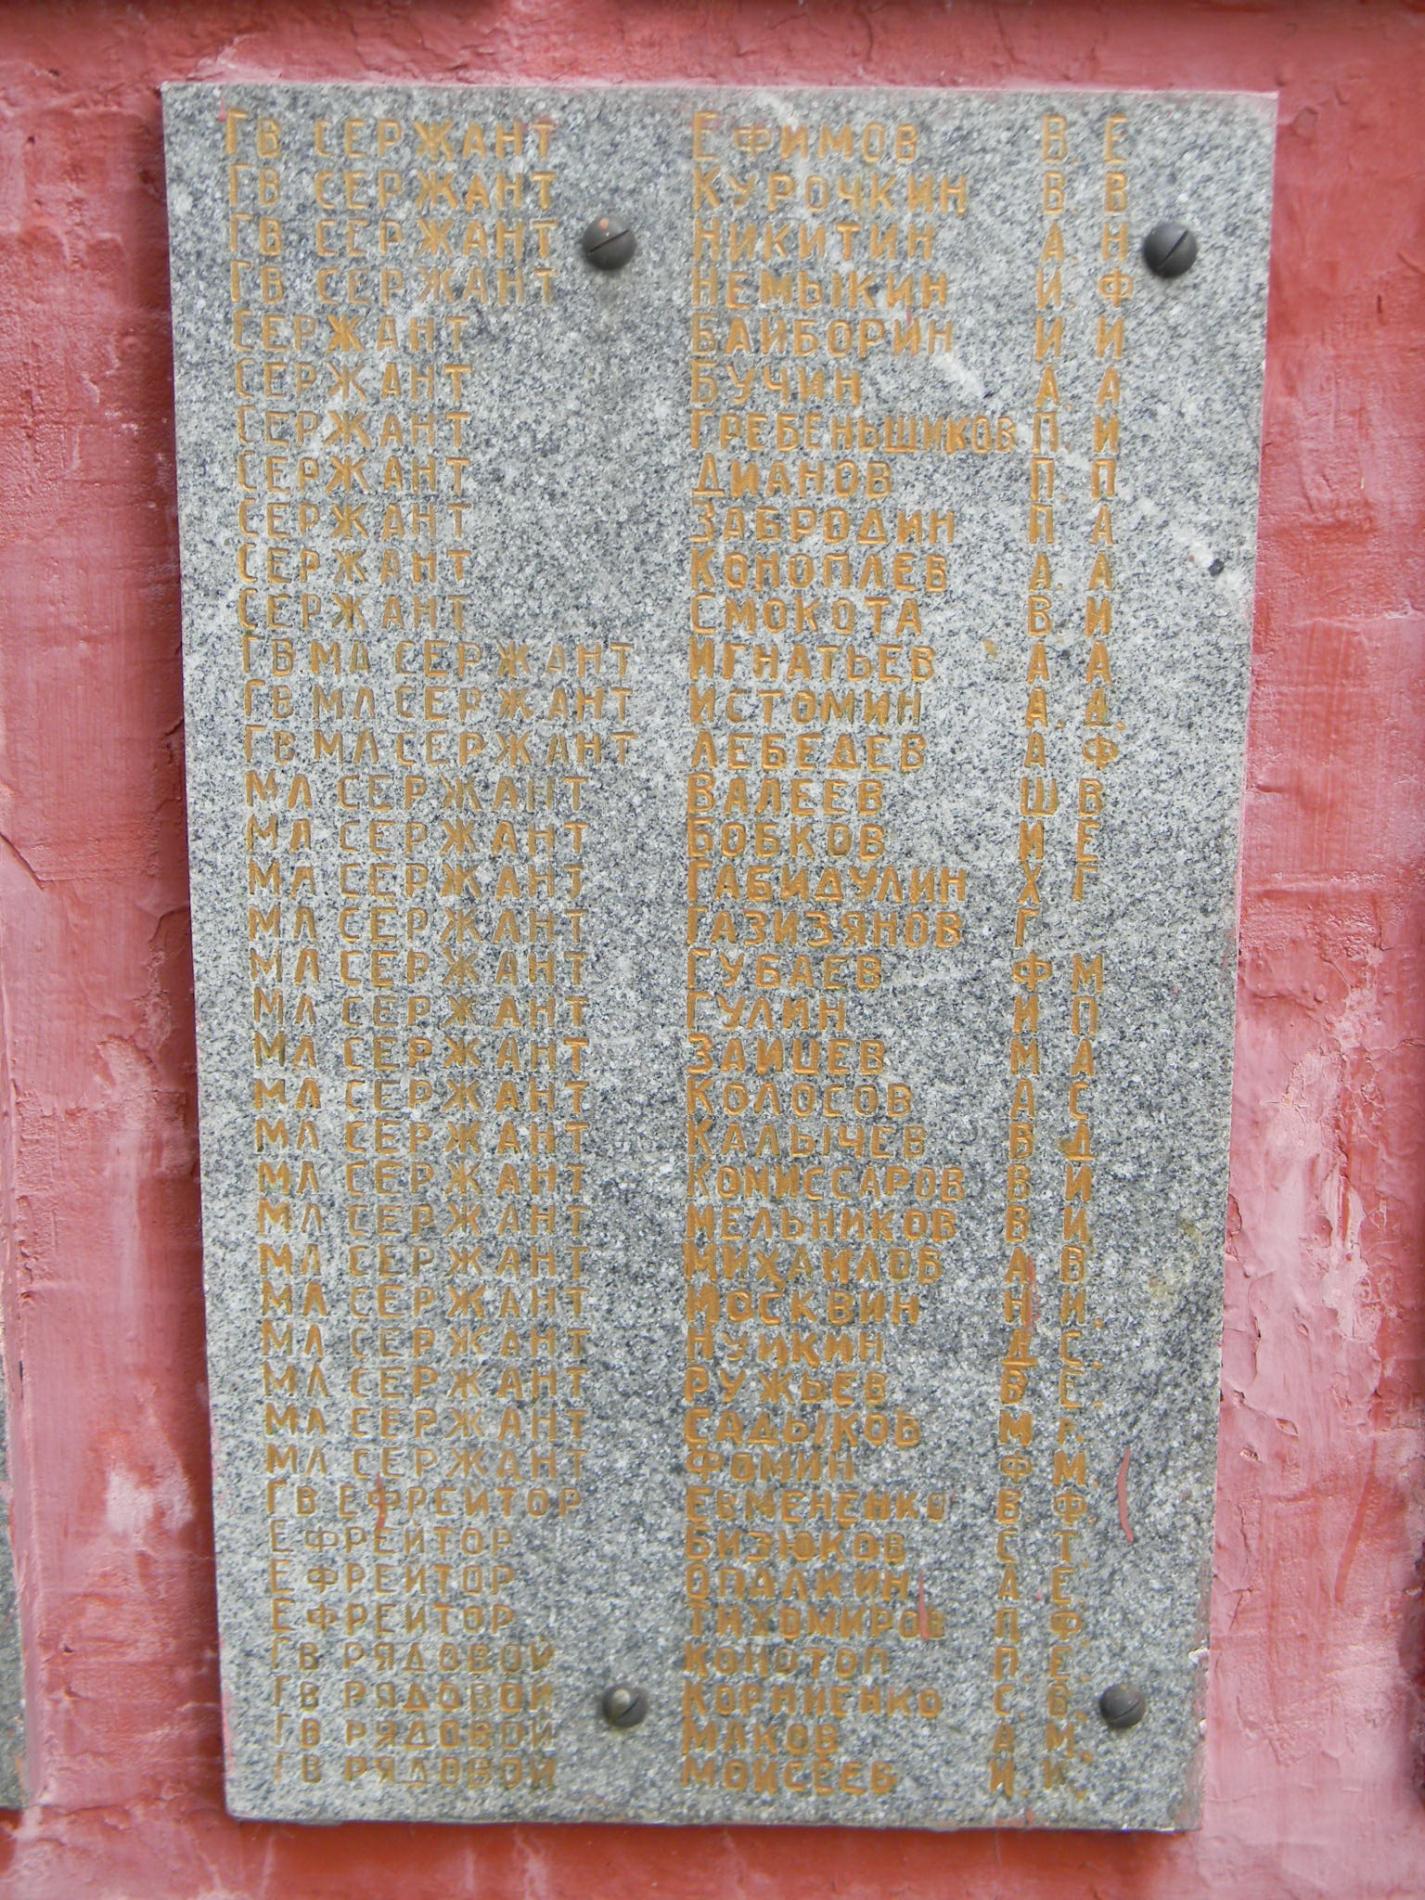 ГВ СЕРЖАНТ ЕФИМОВ В. Е
ГВ СЕРЖАНТ КУРОЧКИН В. В
ГВ СЕРЖАНТ НИКИТИН А. Н
ГВ СЕРЖАНТ НЕМЫКИН И. Ф
СЕРЖАНТ БАЙБОРИН И. И
СЕРЖАНТ БУЧИН А. А
СЕРЖАНТ ГРЕБЕНЬЩИКОВ П. И
СЕРЖАНТ ДИАНОВ П. П
СЕРЖАНТ ЗАБРОДИН П А
СЕРЖАНТ КОНОПЛЕВ А. А
СЕРЖАНТ СМОКОТА В. И
ГВ МЛ СЕРЖАНТ ИГНАТЬЕВ А А
ГВ МЛ СЕРЖАНТ ИСТОМИН А. Д.
ГВ МЛ СЕРЖАНТ ЛЕБЕДЕВ А Ф
МЛ СЕРЖАНТ ВАЛЕЕВ Ш В
МЛ СЕРЖАНТ БОБКОВ И Е
МЛ СЕРЖАНТ ГАБИДУЛИН Х Г
МЛ СЕРЖАНТ ГАЗИЗЯНОВ Г
МЛ СЕРЖАНТ ГУБАЕВ Ф М
МЛ СЕРЖАНТ ГУЛИН И П
МЛ СЕРЖАНТ ЗАИЦЕВ М А
МЛ СЕРЖАНТ КОЛОСОВ А С
МЛ СЕРЖАНТ КАЛЫЧЕВ В Д
МЛ СЕРЖАНТ КОМИССАРОВ В И
МЛ СЕРЖАНТ МЕЛЬНИКОВ В И
МЛ СЕРЖАНТ МИХАИЛОВ А В
МЛ СЕРЖАНТ МОСКВИН Н И.
МЛ СЕРЖАНТ НУЙКИН Д С.
МЛ СЕРЖАНТ РУЖЬЕВ В Е.
МЛ СЕРЖАНТ САДЫКОВ М Г.
МЛ СЕРЖАНТ ФОМИН Ф М.
ГВ ЕФРЕИТОР ЕВМЕНЕНКО В. Ф.
ЕФРЕИТОР БИЗЮКОВ С Т.
ЕФРЕЙТОР ОПАЛКИН А Е
ЕФРЕИТОР ТИХОМИРОВ П Ф.
ГВ РЯДОВОЙ КОНОТОП П. Е.
ГВ РЯДОВОЙ КОРНИЕНКО С В.
ГВ РЯДОВОЙ МАКОВ А М.
ГВ РЯДОВОЙ МОЙСЕЕВ И. И.